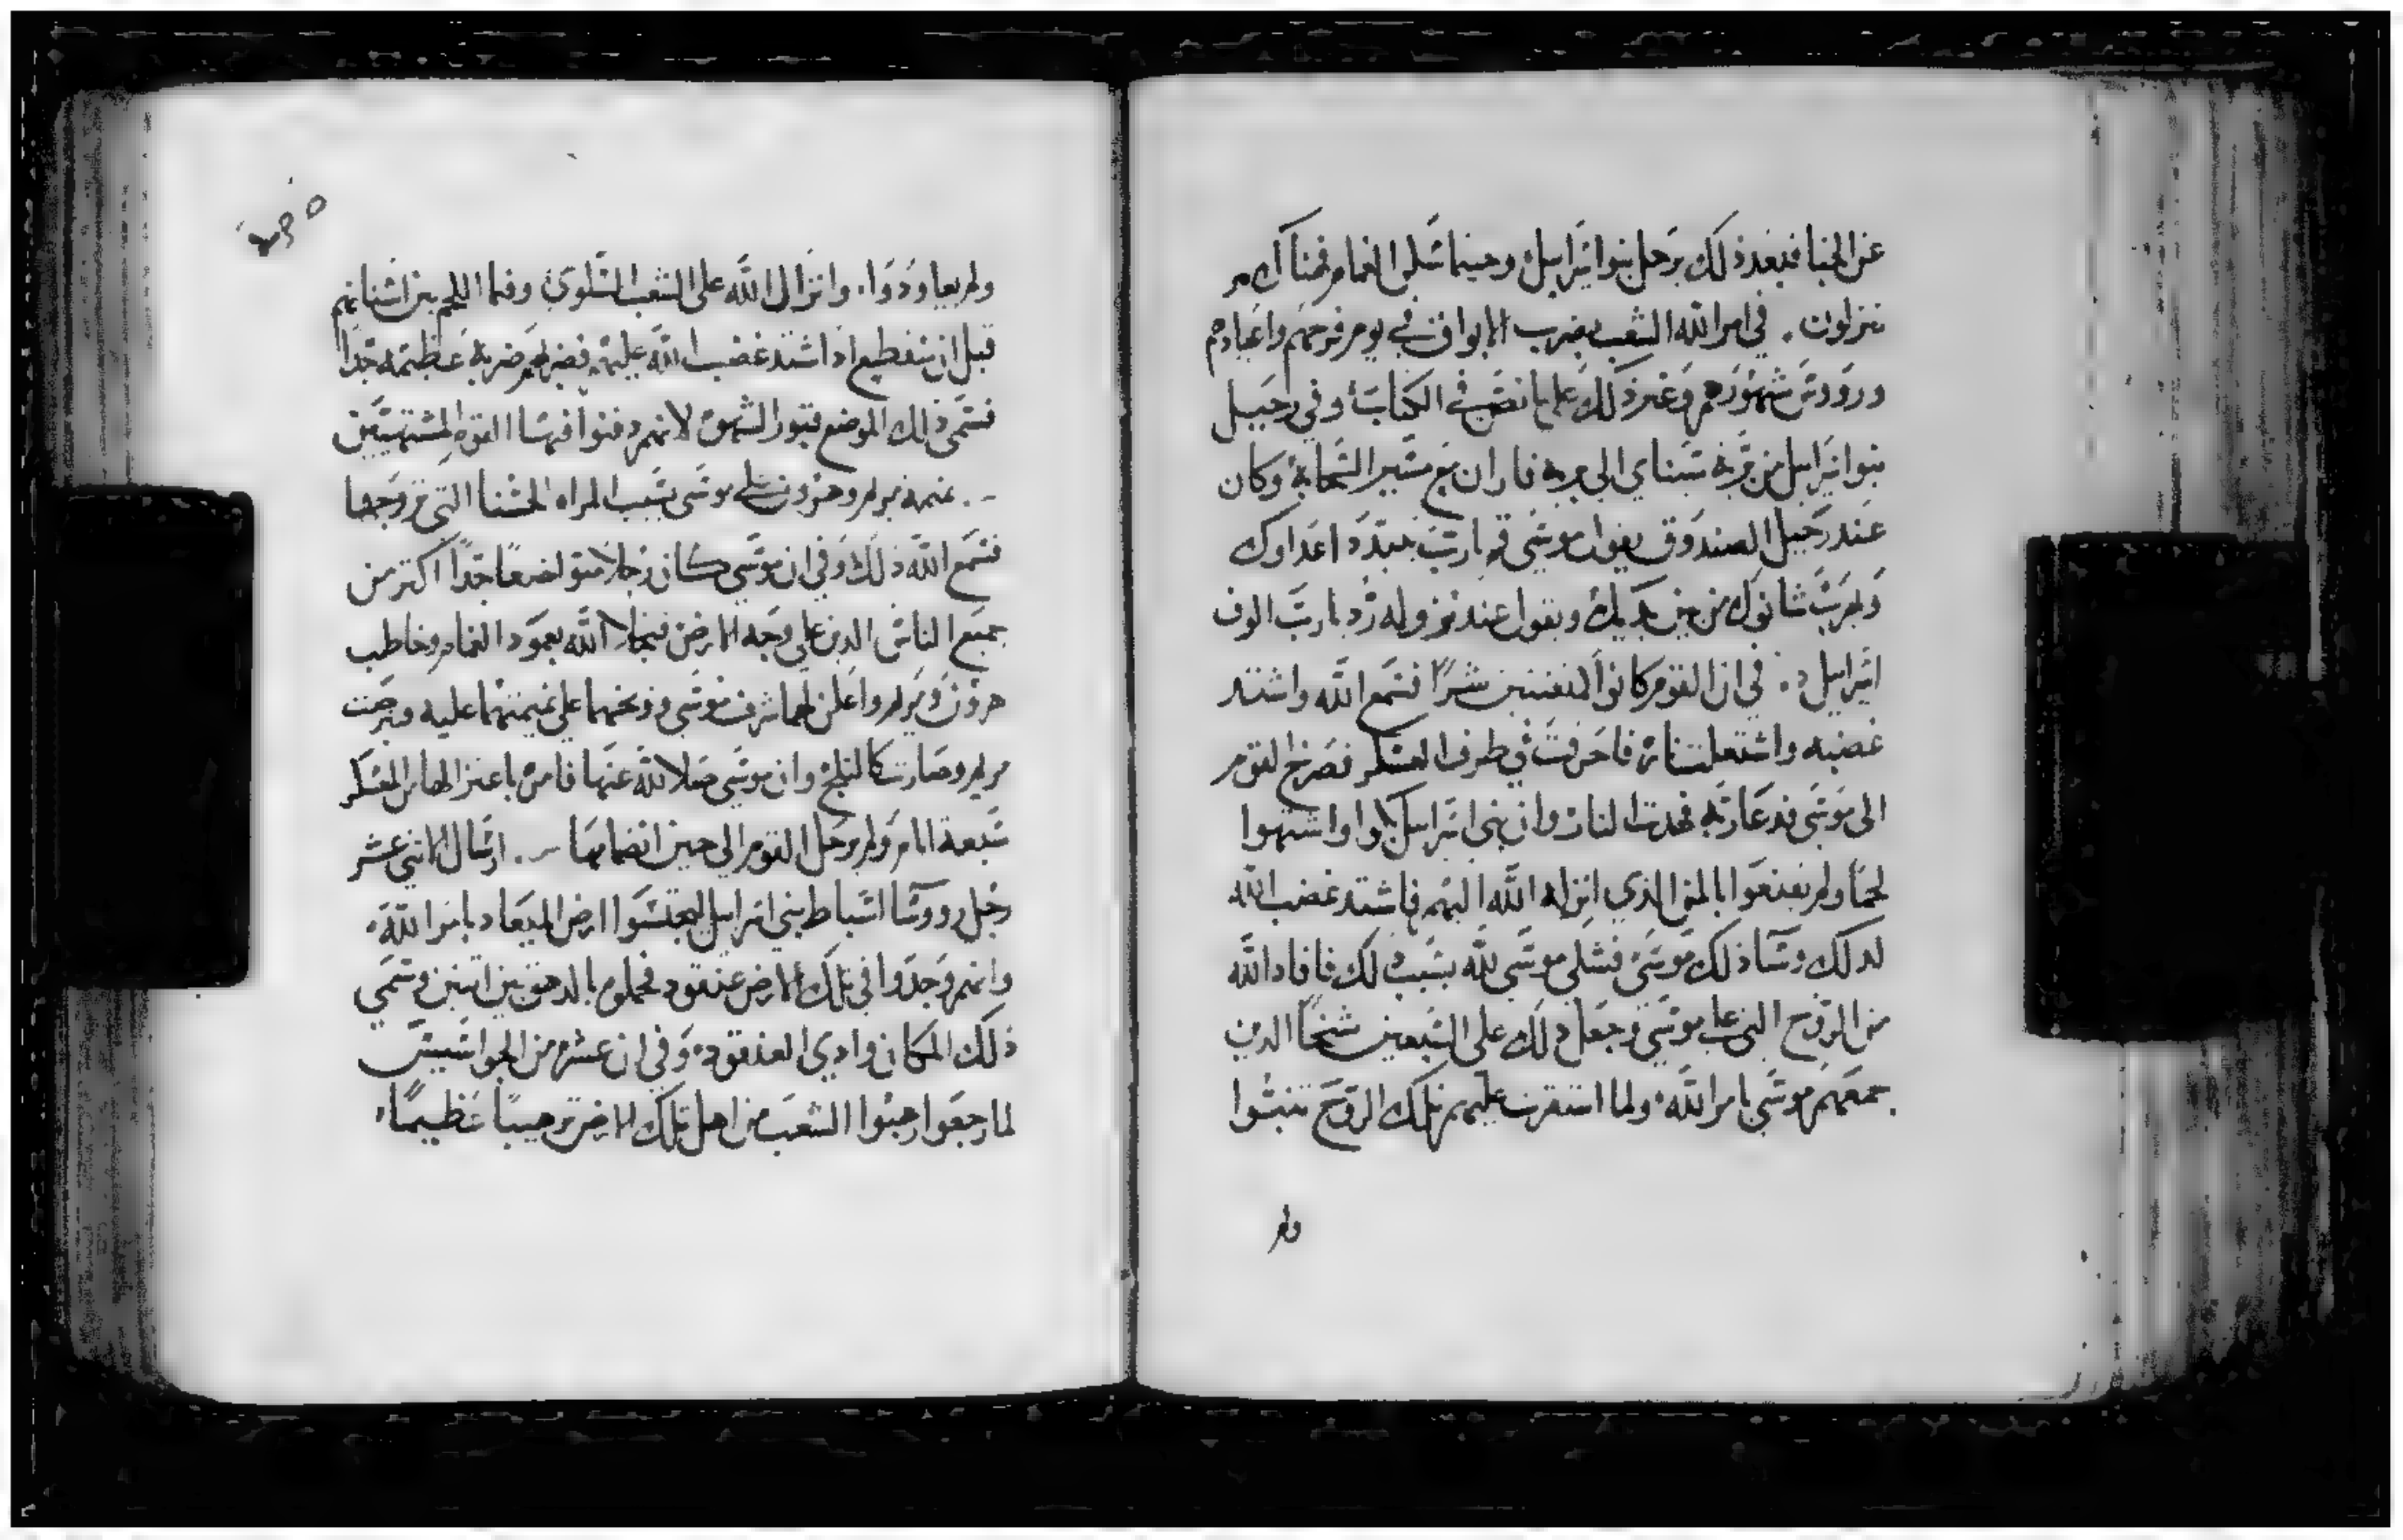 عن الخبا فبعد ذلك يرحل بنوا اسراييل وحينما سكن الغمام فهناك
ينزلون . في امر الله الشعب بضرب الابواق في يوم فرحهم واعيادهم
وروودس شهورهم وغير ذلك على ما نصه في الكتاب وفي رحيل
بنوا اسراييل من برية سيناي الى برية فاران مع مسير السحابة وكان
عند رحيل الصندوق يقول موسى قم يا رب يتبدد اعداوك
ويهرب شانوك من بين يديك ويقول عند نزوله رد يا رب الوف
اسراييل . في ان القوم كانوا متعنتين شرا فسمع الله واشتد
غضبه واشتعلت ناره فاحرقت في طرف العسكر فصرخ القوم
الى موسى فدعا ربه فخمدت النار وان بني اسراييل بكوا واشتهوا
لحما ولم يقنعوا بالمن الذي انزله الله اليهم فاشتد غضب الله
لدلك وسا ذلك موسى فشكى موسى لله بسبب ذلك فافاد الله
من الروح التي على موسى وجعل ذلك على السبعين شيخا الدين
جمعهم موسى بامر الله ولما استقرت عليهم تلك الروح تنبوا
ولم
ولم يعاودوا . وانزال الله على الشعب السلوى وفيما اللحم بين اسنانهم
قبل ان ينقطع اد اشتد غضب الله عليهم فضربهم ضربة عظيمة جدا
فسمى ذلك الموضع قبور الشهوة لانهم دفنوا فيها القوم المشتهيين
. نميمة مريم وهرون على موسى بسبب المراه الحسنا التي تزوجها
فسمع الله ذلك وفي ان موسى كان رجلا متواضعا جدا اكتر من
جميع الناس الدين على وجه الارض فتجلا الله بعمود الغمام وخاطب
هرون ومريم واعلن لهما شرف موسى ووبخهما على نميمتهما عليه وبرصت
مريم وصارت كالثلج وان موسى صلا لله عنها فامر باعتزالها من العسكر
سبعة ايام ولم يرحل القوم الى حين انضمامها . ارسال الاتني عشر
رجل روسا اسباط بني اسراييل ليجتسوا ارض الميعاد بامر الله
وانهم وجدوا في تلك الارض عنقود فحملوه بالدهق بين اتنين وسمي
ذلك المكان وادي العنقود وفي ان عشره من الجواسيس
لما رجعوا رهبوا الشعب من اهل تلك الارض ترهيبا عظيما